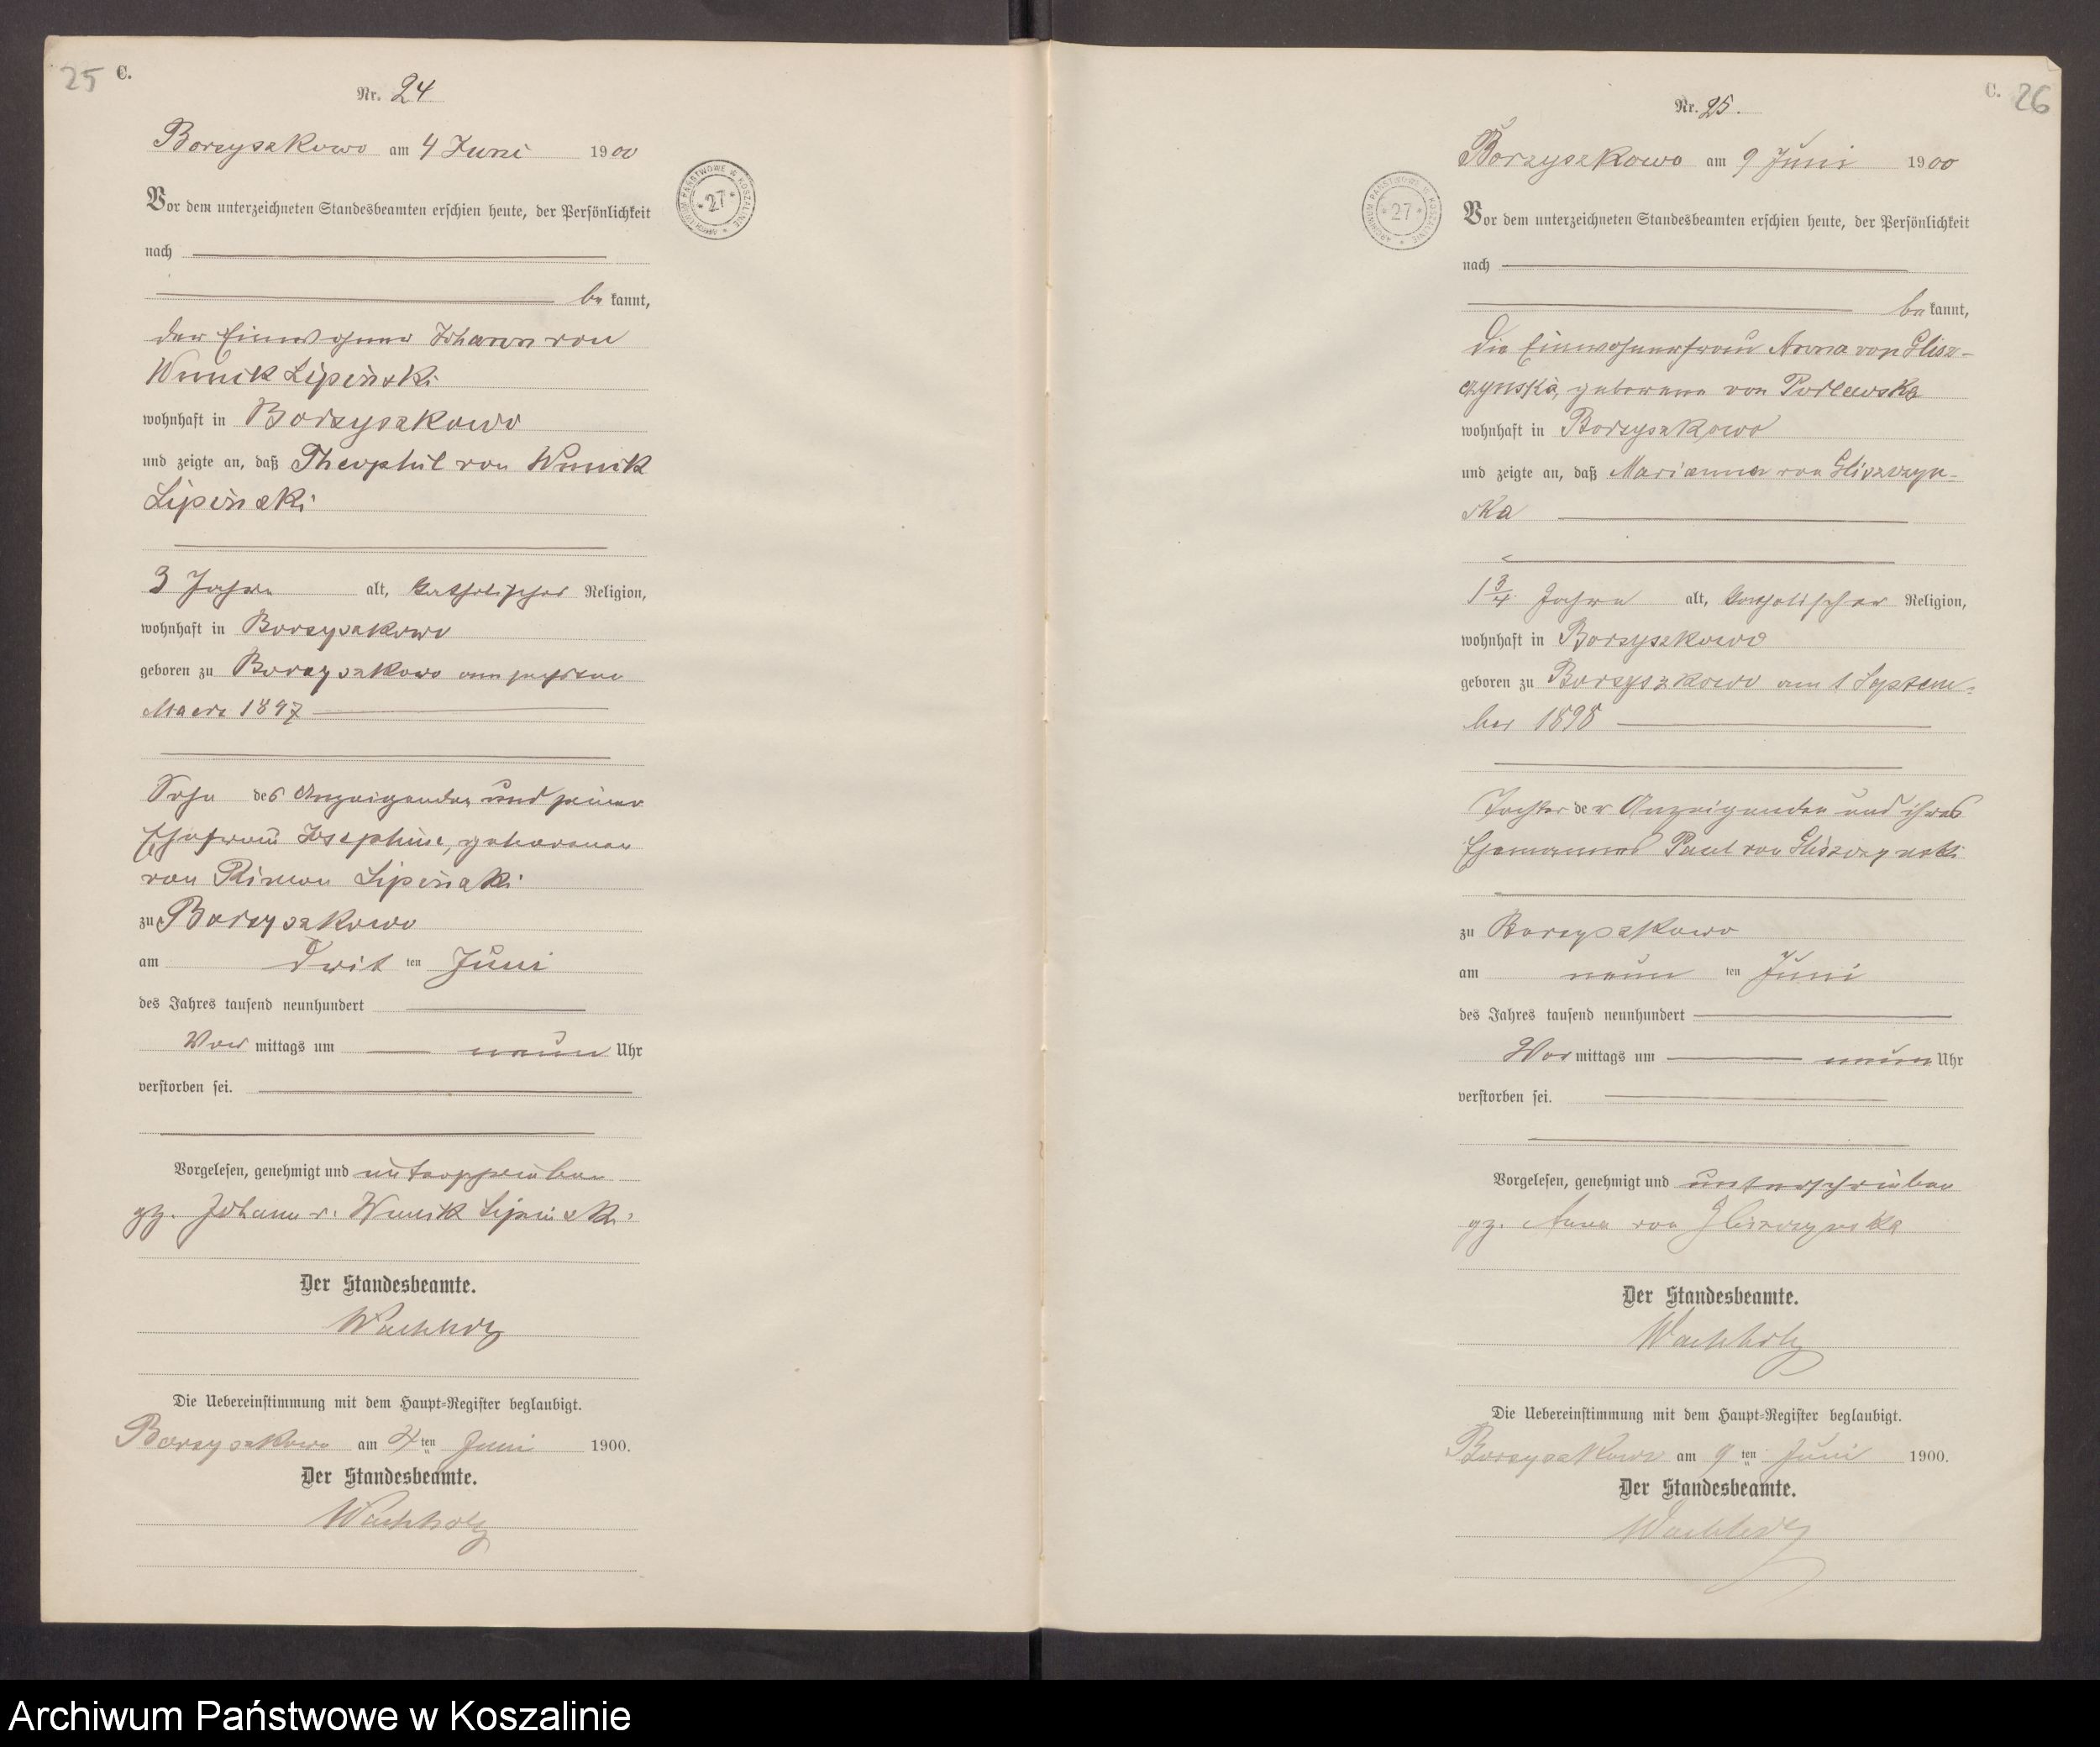 25 C.
Nr. 24
Borzyszkowo am 4 Juni 1900
Vor dem unterzeichneten Standesbeamten erschien heute, der Persönlichkeit
nach
bekannt,
der Einwohner Johann von
Wnuk Lipinski
wohnhaft in Borzyszkowo
und zeigte an, daß Theophil von Wnuk
Lipinski
3 Jahre alt, katholischer Religion,
wohnhaft in Borzyszkowo
geboren zu Borzyszkowo am sechsten
Maerz 1897
Sohn des Anzeigenden und seiner
Ehefrau Josephine, geborenen
von Lipinski
zu Borzyszkowo
am dritten Juni
des Jahres tausend neunhundert
Vormittags um neun Uhr
verstorben sei.
Vorgelesen, genehmigt und unterschrieben
gz. Johann v. Wnuk Lipinski
Der Standesbeamte.
Wachholz
Die Uebereinstimmung mit dem Haupt-Register beglaubigt.
Borzyszkowo am 4ten Juni 1900.
Der Standesbeamte.
Wachholz
ARCHIWUM PAŃSTWOWE W KOSZALINIE * 27 *
C. 26
Nr. 25.
Borzyszkowo am 9 Juni 1900
ARCHIWUM PAŃSTWOWE W KOSZALINIE * 27 *
Vor dem unterzeichneten Standesbeamten erschien heute, der Persönlichkeit
nach
bekannt,
die Einwohnerfrau Anna von Glisz-
czynska, geborene von
wohnhaft in Borzyszkowo
und zeigte an, daß Marianna von Gliszczyn-
ska
1 3/4 Jahre alt, katholischer Religion,
wohnhaft in Borzyszkowo
geboren zu Borzyszkowo am 1 Septem-
ber 1898
Tochter der Anzeigenden und ihres
Ehemannes Paul von Gliszczynski
zu Borzyszkowo
am neunten Juni
des Jahres tausend neunhundert
Vormittags um neun Uhr
verstorben sei.
Vorgelesen, genehmigt und unterschrieben
gz. Anna von Gliszczynska
Der Standesbeamte.
Wachholz
Die Uebereinstimmung mit dem Haupt-Register beglaubigt.
Borzyszkowo am 9ten Juni 1900.
Der Standesbeamte.
Wachholz
Archiwum Państwowe w Koszalinie